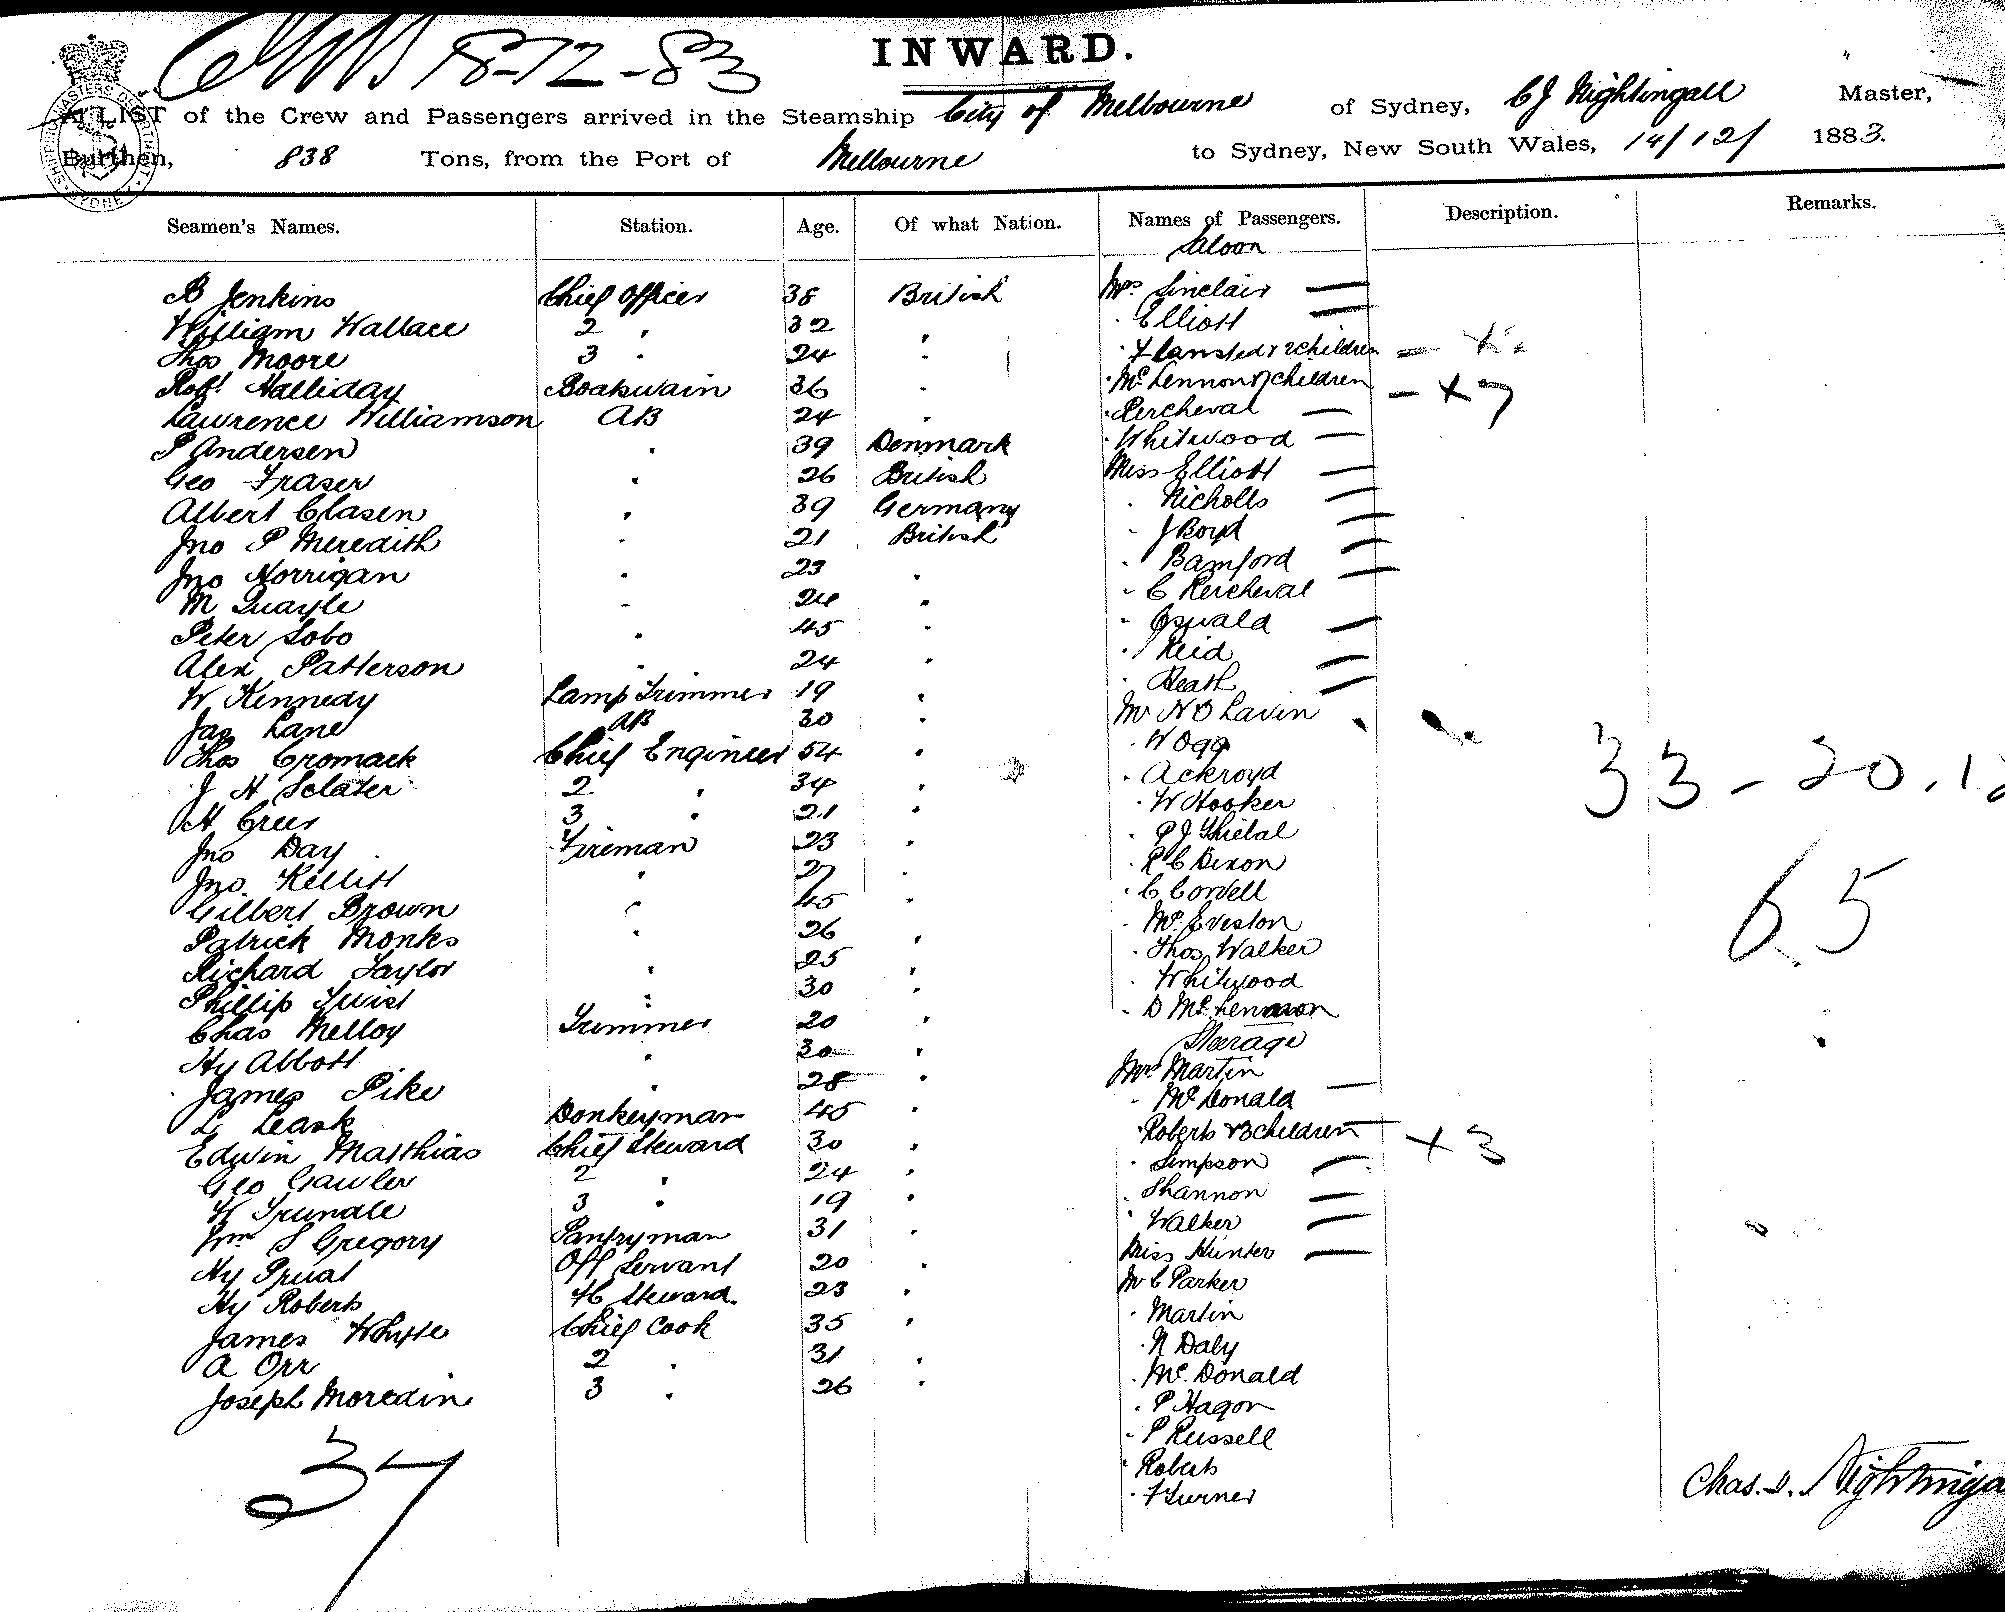 18-12-83
INWARD.
A LIST of the Crew and Passengers arrived in the Steamship City of Melbourne of Sydney, C J Nightingall Master,
Burthen, 838 Tons, from the Port of Melbourne to Sydney, New South Wales, 14/12/ 1883.
SHIPPING MASTERS DEPARTMENT SYDNEY
Seamen's Names. Station. Age. Of what Nation. Names of Passengers. Description. Remarks.
Saloon
B Jenkins Chief Officer 38 British Mrs Sinclair —
William Wallace 2 " 32 " " Elliott —
Thos Moore 3 " 24 " " Flansted & 2 children — x 2
Robt Halliday Boatswain 36 " " McLennon & 7 children — x 7
Lawrence Williamson AB 24 " " Percheval —
P Andersen " 39 Denmark " Whitwood —
Geo Fraser " 26 British Miss Elliott —
Albert Clasen " 39 Germany " Nicholls —
Jno P Meredith " 21 British " J Boyd —
Jno Horrigan " 23 " " Bamford —
M Quayle " 24 " " C Percheval —
Peter Lobo " 45 " " Oswald —
Alex Patterson " 24 " " Reid —
W Kennedy Lamp Trimmer 19 " " Heath —
Jas Lane AB 30 " Mr N O Lavin
Thos Cromack Chief Engineer 54 " " W Ogg
J H Sclater 2 " 34 " " Ackroyd
H Greer 3 " 21 " " W Hooker
Jno Day Fireman 23 " " P J Thielal
Jno Kellitt " 27 " " R C Dixon
Gilbert Brown " 45 " " C Cordell
Patrick Monks " 26 " " McEveston
Richard Taylor " 25 " " Thos Walker
Phillip Twist " 30 " " Whitwood
Chas Melloy Trimmer 20 " " D McLennon
Steerage
Hy Abbott " 30 "
James Pike " 28 " Mrs Martin
L Leask Donkeyman 45 " " McDonald —
Edwin Matthias Chief Steward 30 " " Roberts & 3 children — x 3
Geo Gawler 2 " 24 " " Simpson —
W Trundle 3 " 19 " " Shannon —
Wm S Gregory Pantryman 31 " " Walker —
Hy Pruat Off Servant 20 " Miss Hunter —
Hy Roberts FC Steward 23 " Mr C Parker
James Whyte Chief Cook 35 " " Martin
A Orr 2 " 31 " " N Daly
Joseph Moredin 3 " 26 " " McDonald
" P Hagon
" P Russell
" Roberts
" F Turner
37
33 - 20.12
65
Chas. J. Nightinga